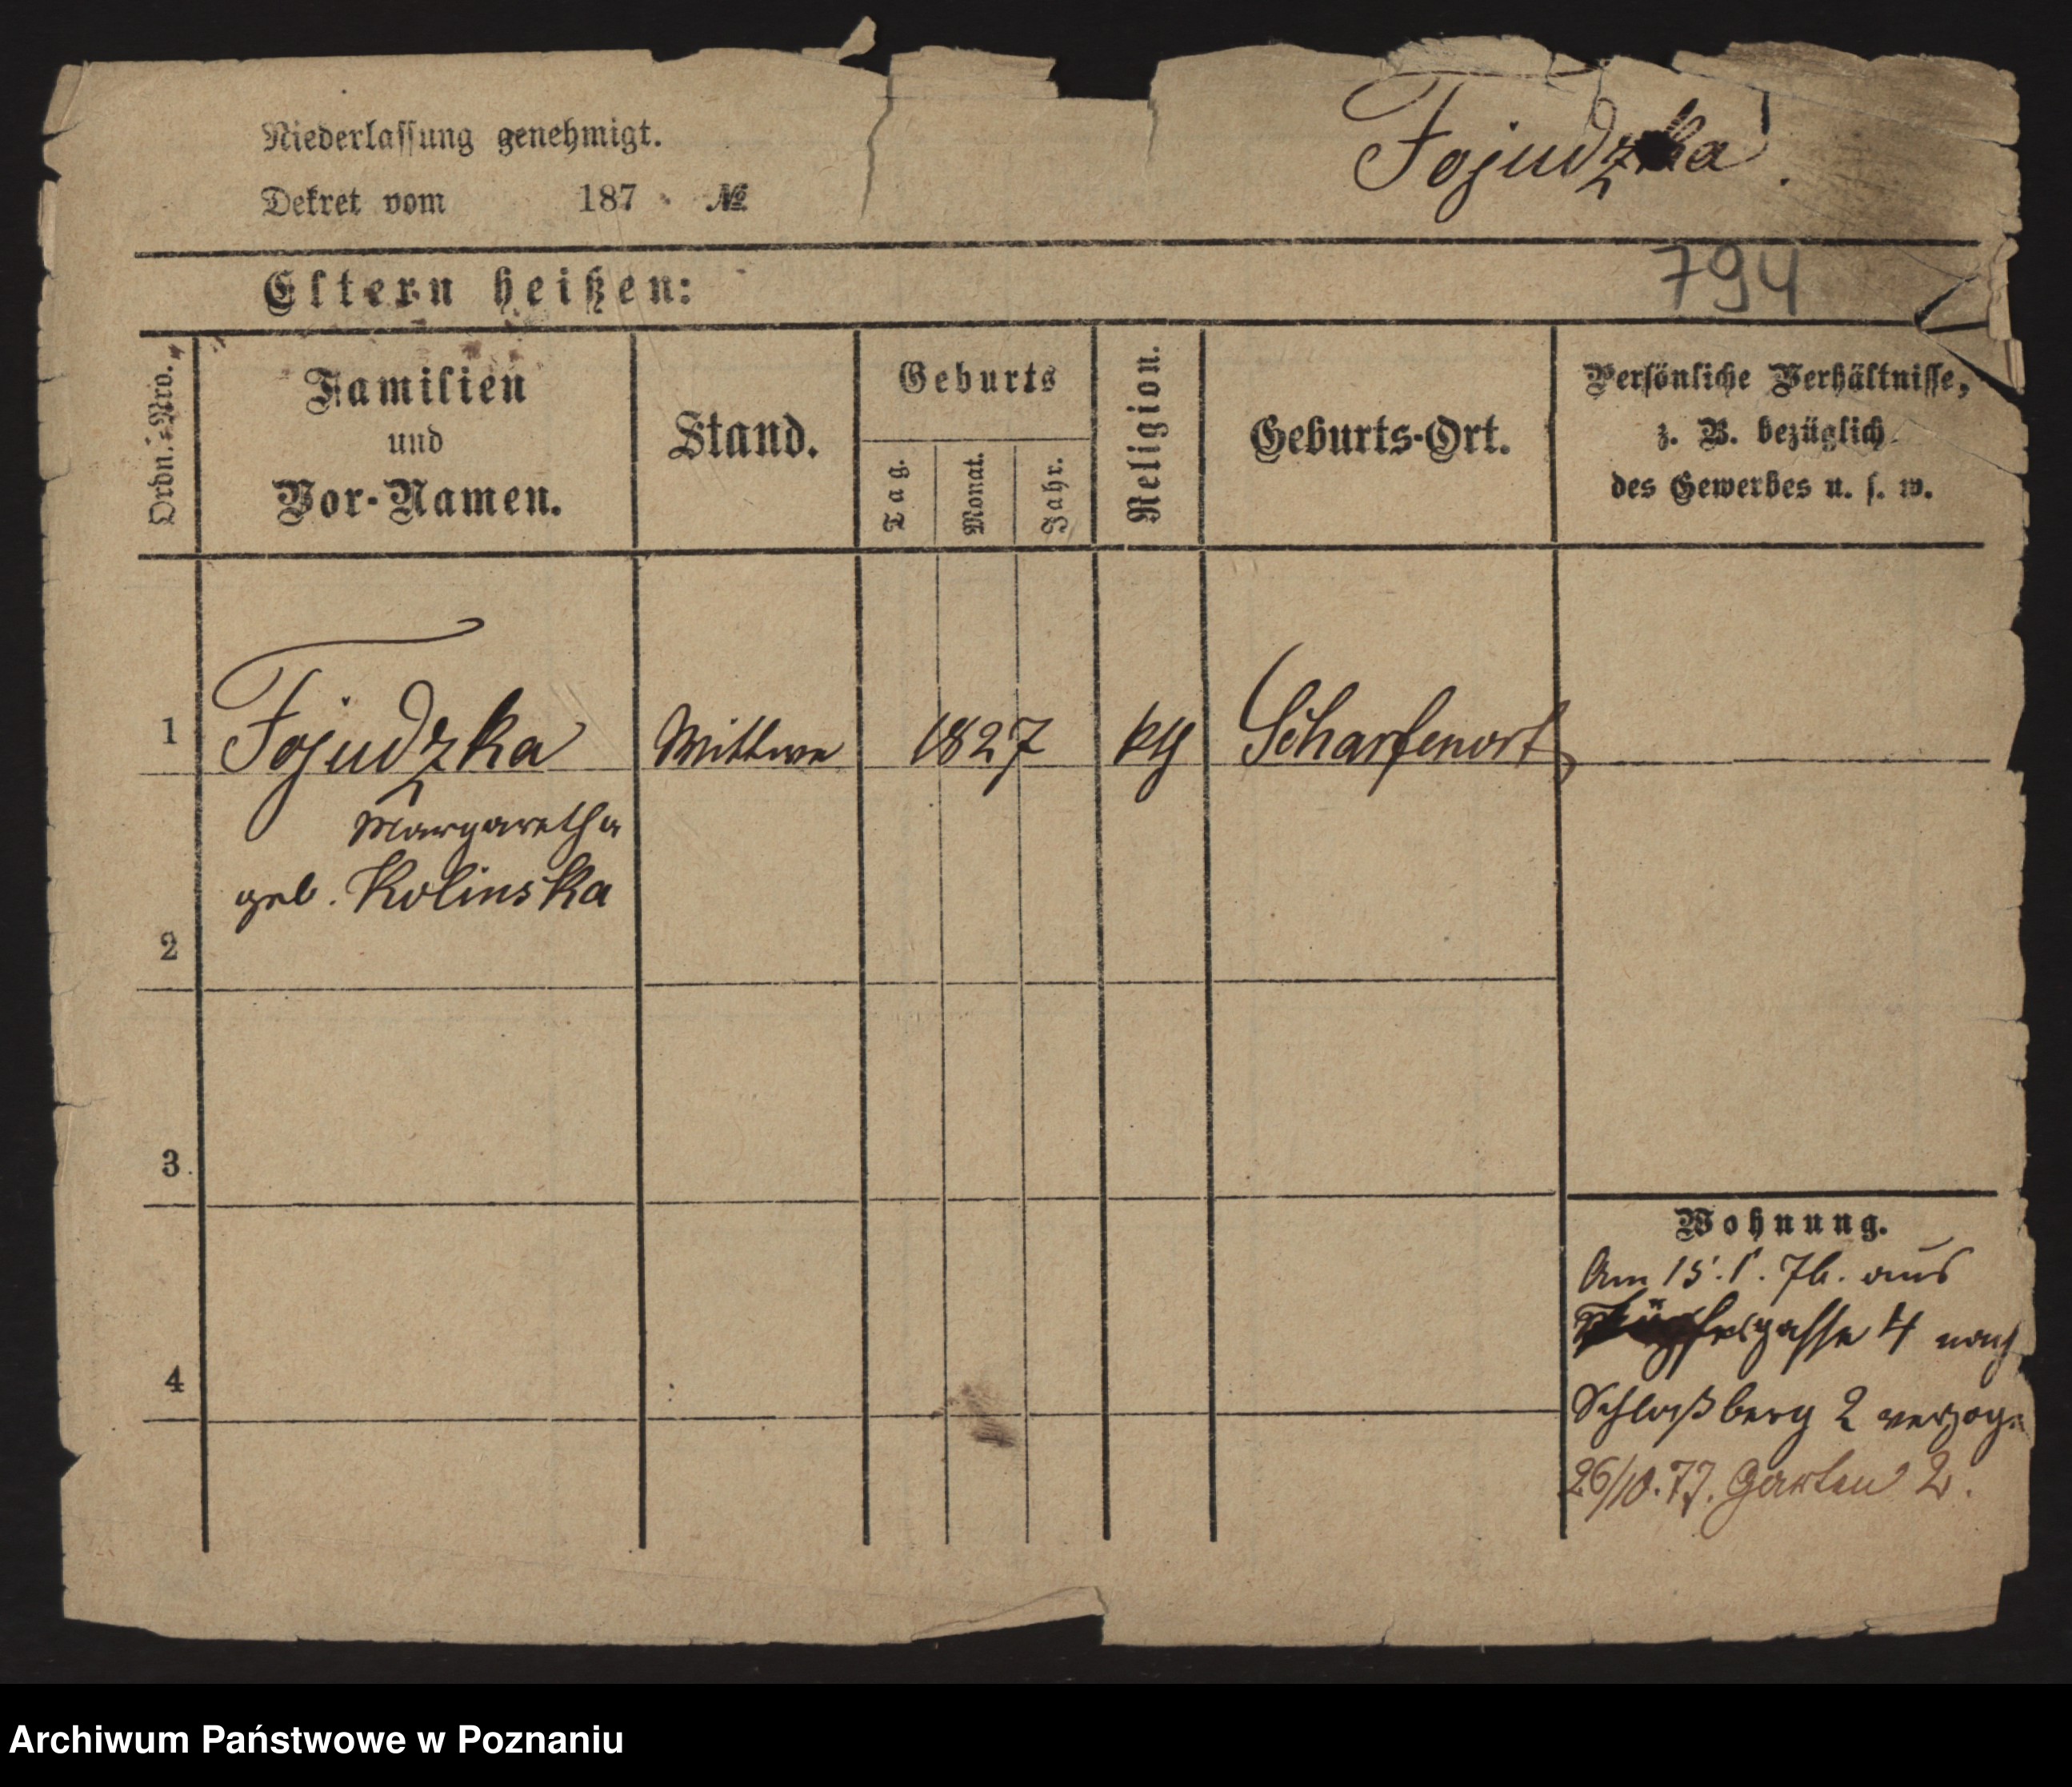 Niederlassung genehmigt.
Dekret vom 187 №
Fojudzka
794
Eltern heißen:
Ordn.-Nro.
Familien
und
Vor-Namen.
Stand.
Geburts
Tag.
Monat.
Jahr.
Religion.
Geburts-Ort.
Persönliche Verhältnisse,
z. B. bezüglich
des Gewerbes u. s. w.
1 Fojudzka Wittwe 1827 kth Scharfenort
Margaretha
geb. Kolinska
2
3
4
Wohnung.
Am 15. 1. 76. aus
4 nach
Schloßberg 2 verzog.
26/10. 77. Garten 2.
Archiwum Państwowe w Poznaniu